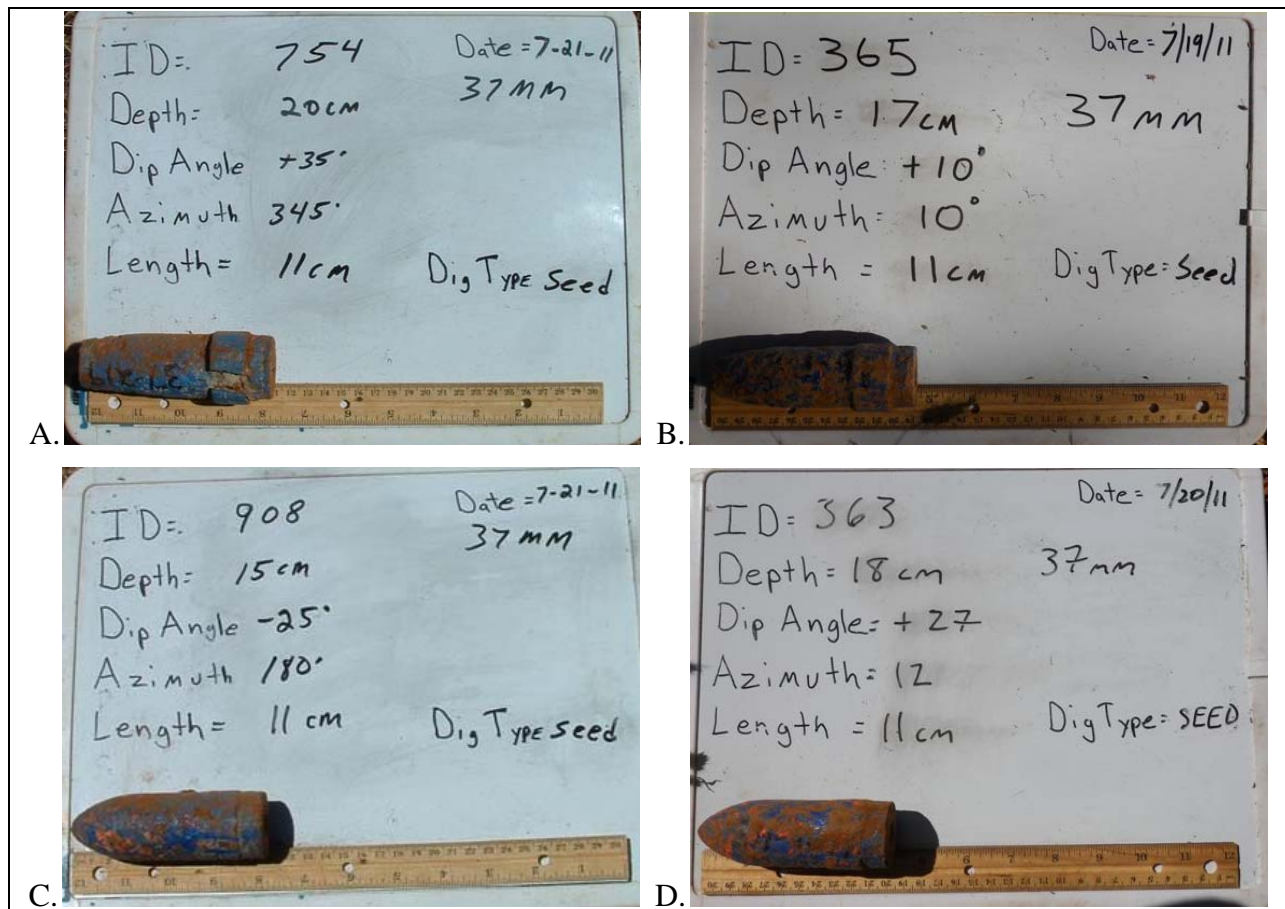 ID=. 754 Date=7-21-11
37MM
Depth= 20cm
Dip Angle +35°
Azimuth 345°
Length= 11cm Dig Type Seed
A.
ID= 365 Date=7/19/11
Depth= 17cm 37mm
Dip Angle: +10°
Azimuth= 10°
Length = 11cm Dig Type=Seed
B.
ID=. 908 Date=7-21-11
37mm
Depth= 15cm
Dip Angle -25°
Azimuth 180°
Length= 11 cm Dig Type Seed
C.
ID= 363 Date= 7/20/11
Depth= 18cm 37mm
Dip Angle= +27
Azimuth= 12
Length = 11cm Dig Type= SEED
D.